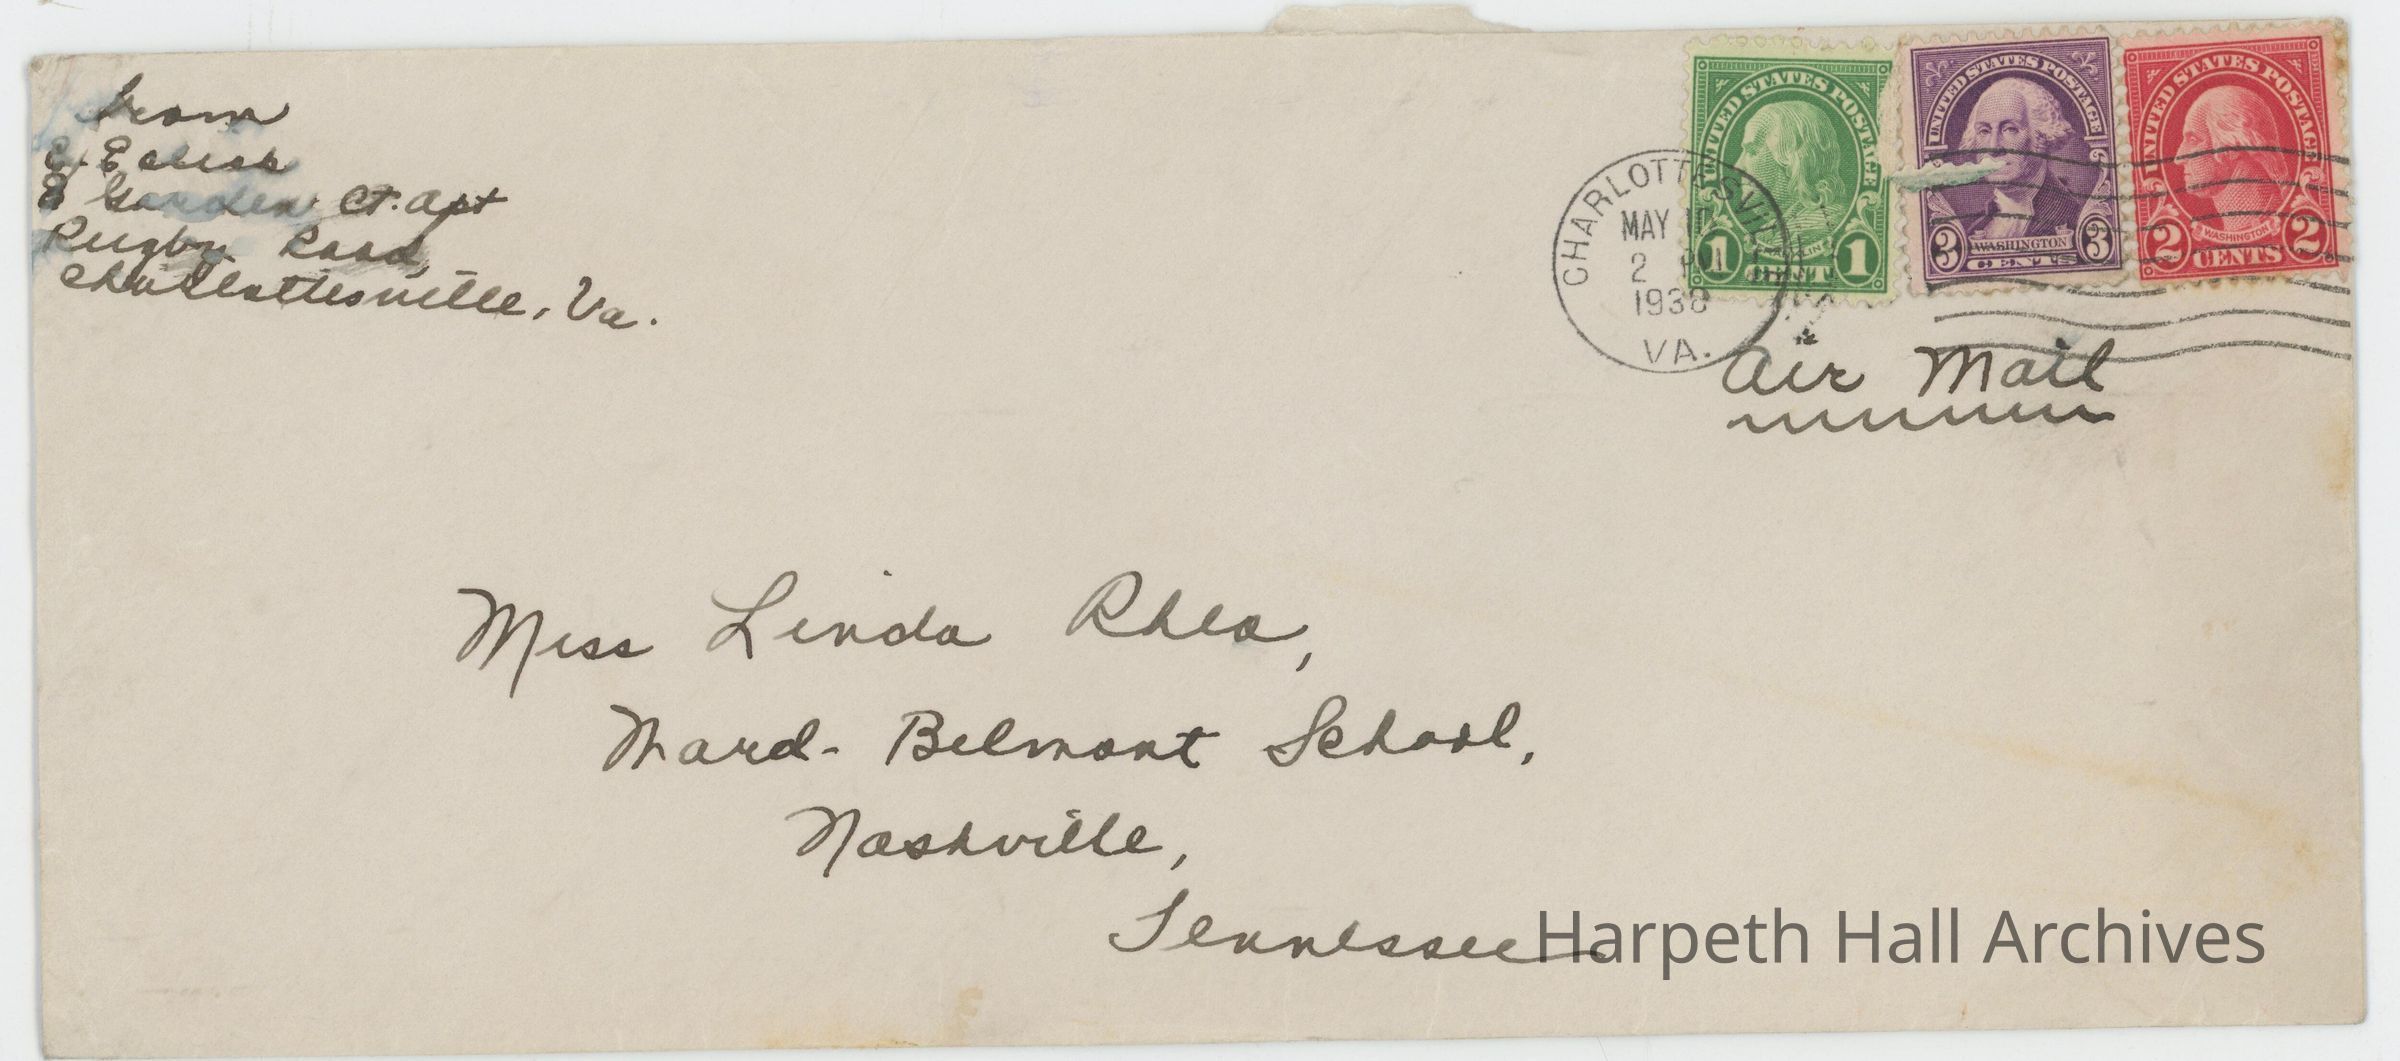 from
E.
Garden Ct. Apt
Rugby Road,
Charlottesville, Va.
UNITED STATES POSTAGE
1 1
UNITED STATES POSTAGE
3 WASHINGTON 3
CENTS
UNITED STATES POSTAGE
2 WASHINGTON 2
CENTS
CHARLOTTESVILLE
MAY
2 PM
VA.
Air Mail
Miss Linda Rhea,
Ward-Belmont School,
Nashville,
Tennessee
Harpeth Hall Archives